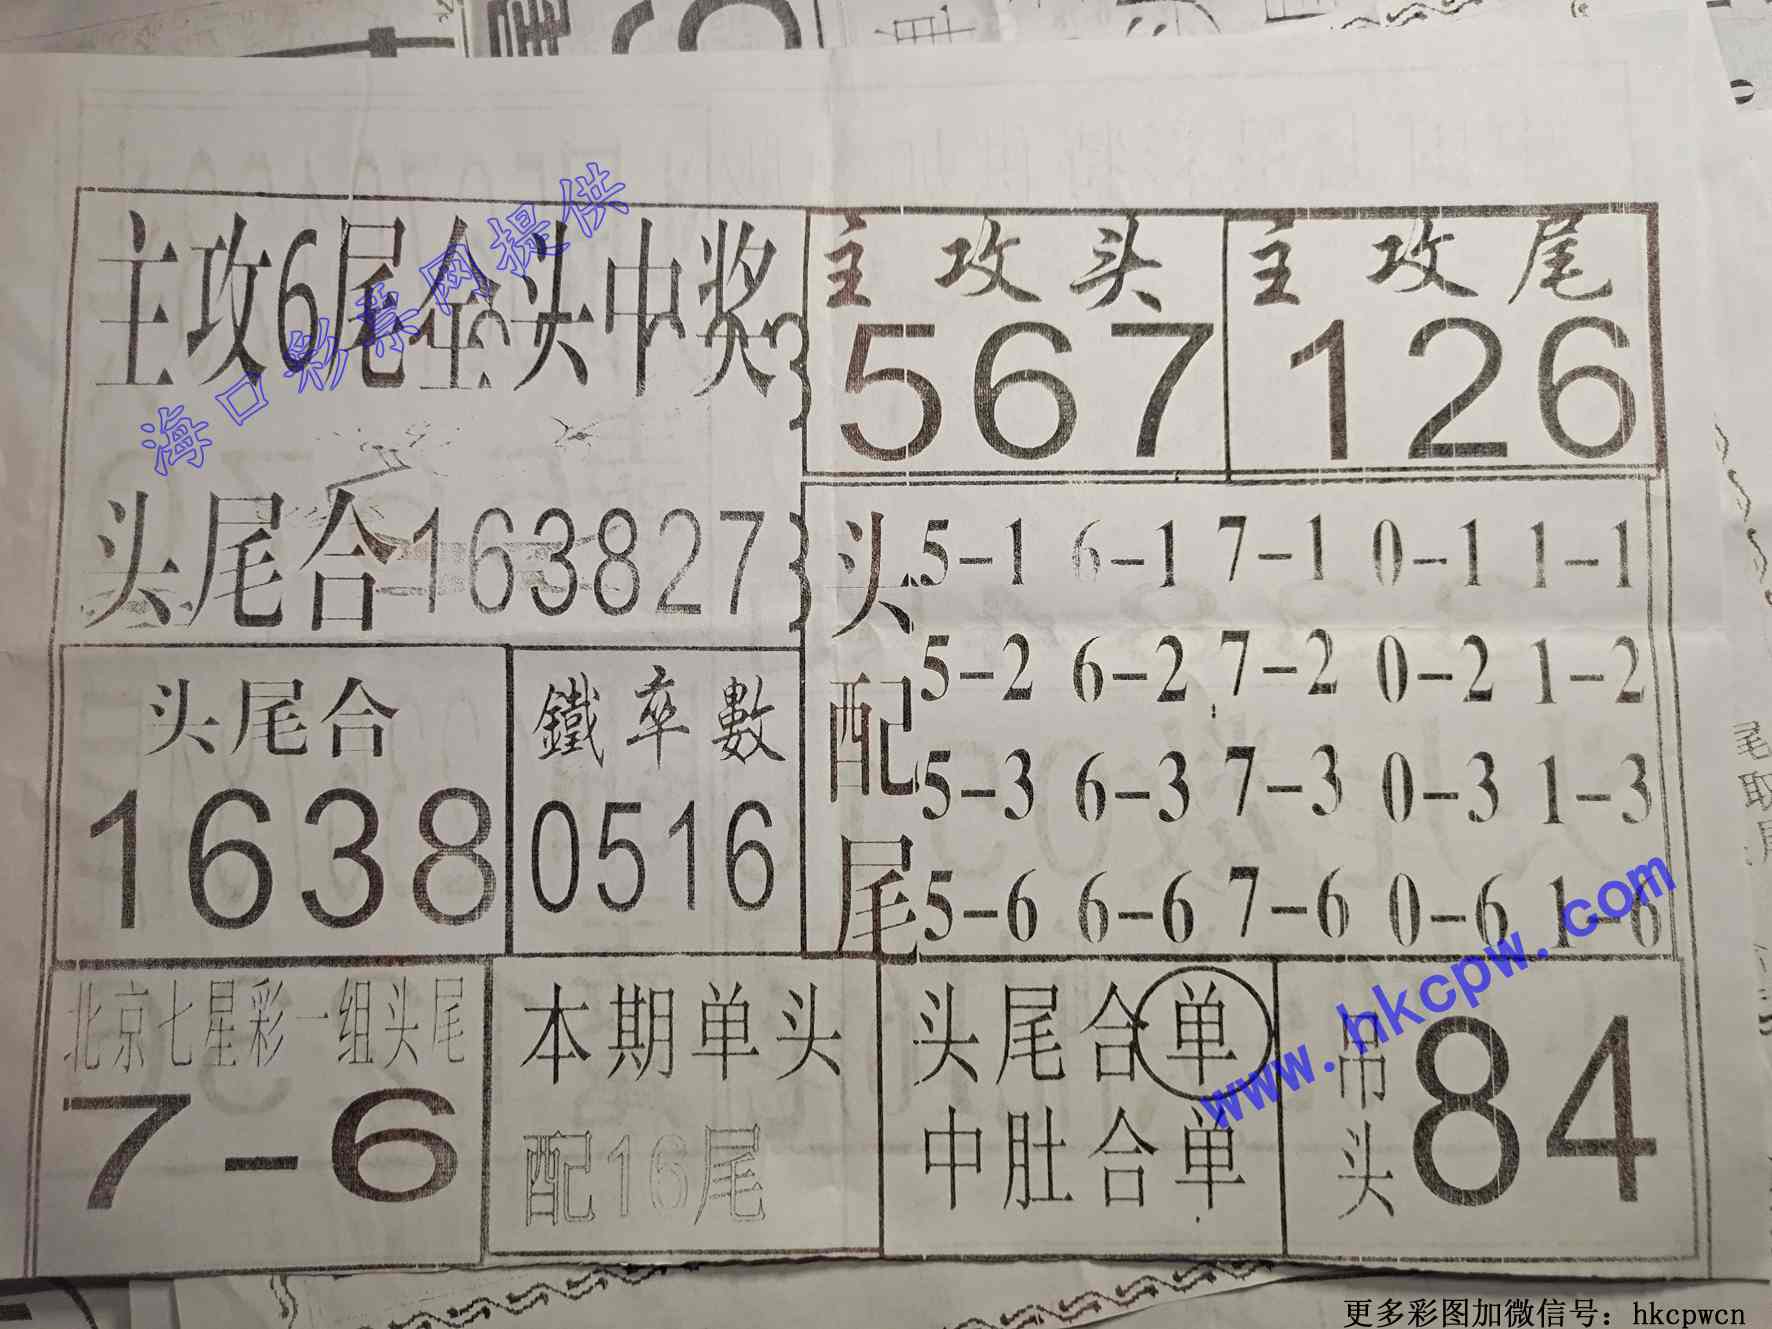 主攻6尾全头中奖
海口彩票网提供
头尾合163827
主攻头
567
主攻尾
126
头配尾
5-1 6-1 7-1 0-1 1-1
5-2 6-2 7-2 0-2 1-2
5-3 6-3 7-3 0-3 1-3
5-6 6-6 7-6 0-6 1-6
头尾合
1638
鐵卒數
0516
北京七星彩一组头尾
7-6
本期单头
配16尾
头尾合单
中肚合单
吊头
84
www.hkcpw.com
尾
单
尾取
更多彩图加微信号：hkcpwcn